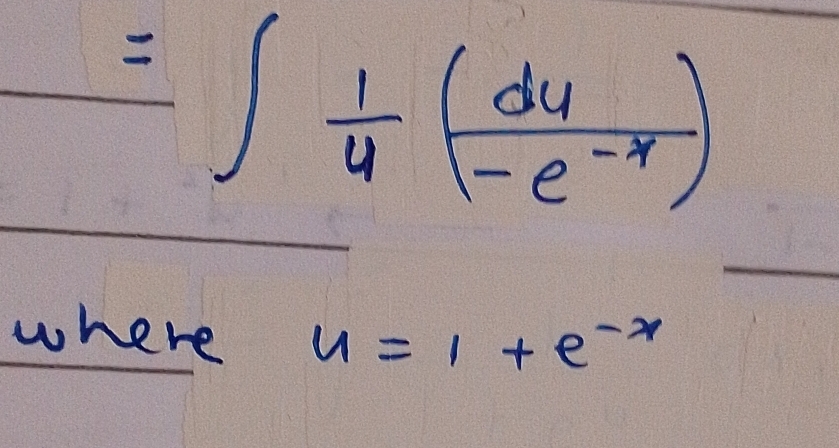 = ∫ 1/u (du/-e^-x)
where u = 1 + e^-x